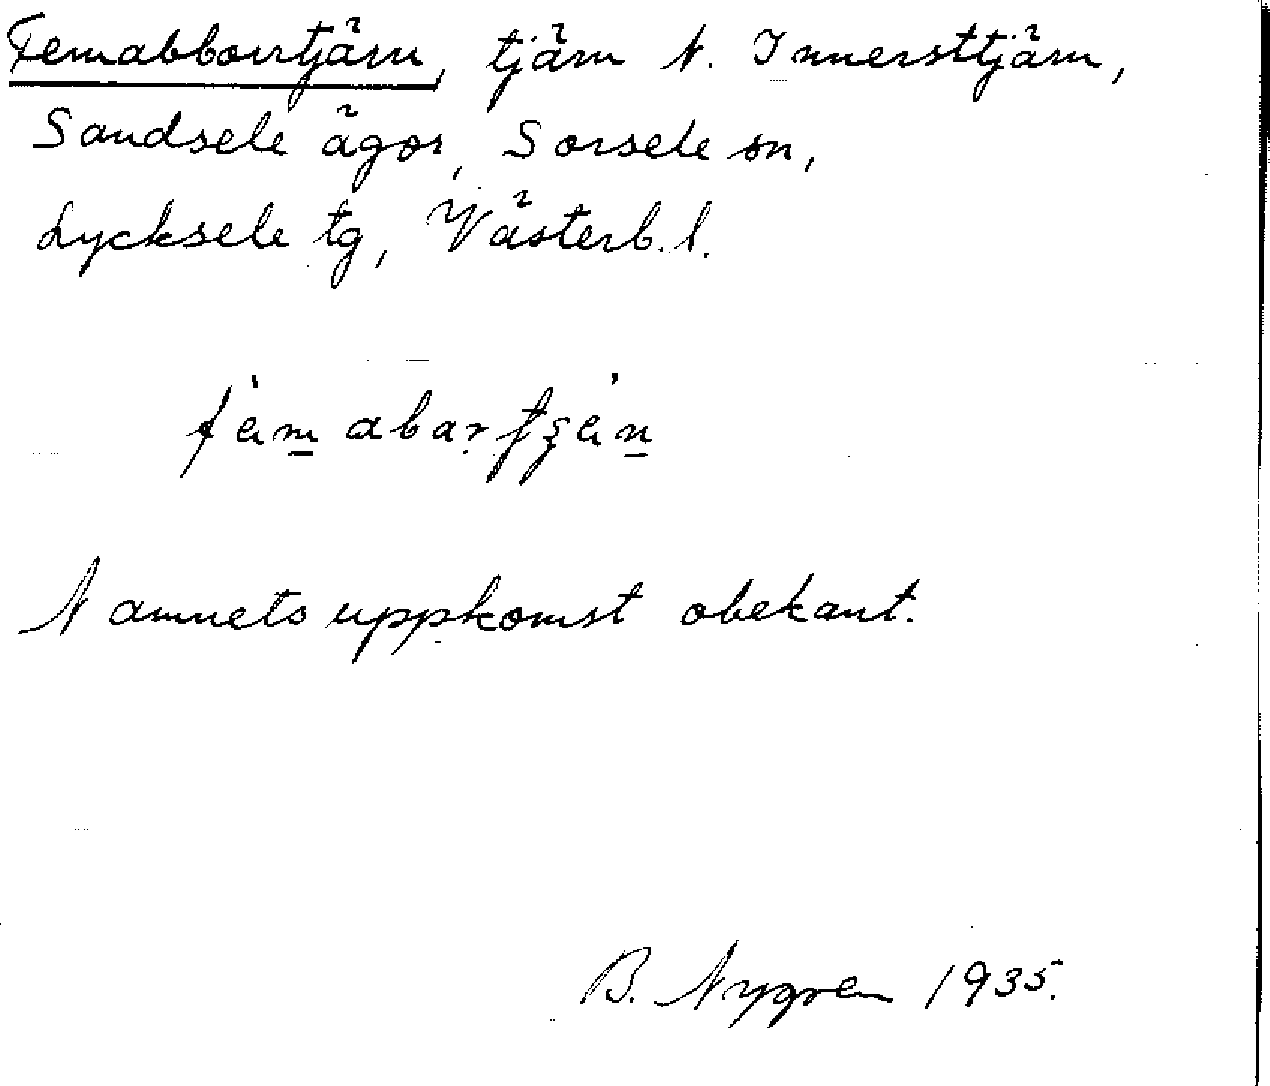 Femabborrtjärn, tjärn N. Innersttjärn,
Sandsele ägor, Sorsele sn,
Lycksele tg, Västerb. l.
Namnets uppkomst obekant.
B. Nygren 1935.